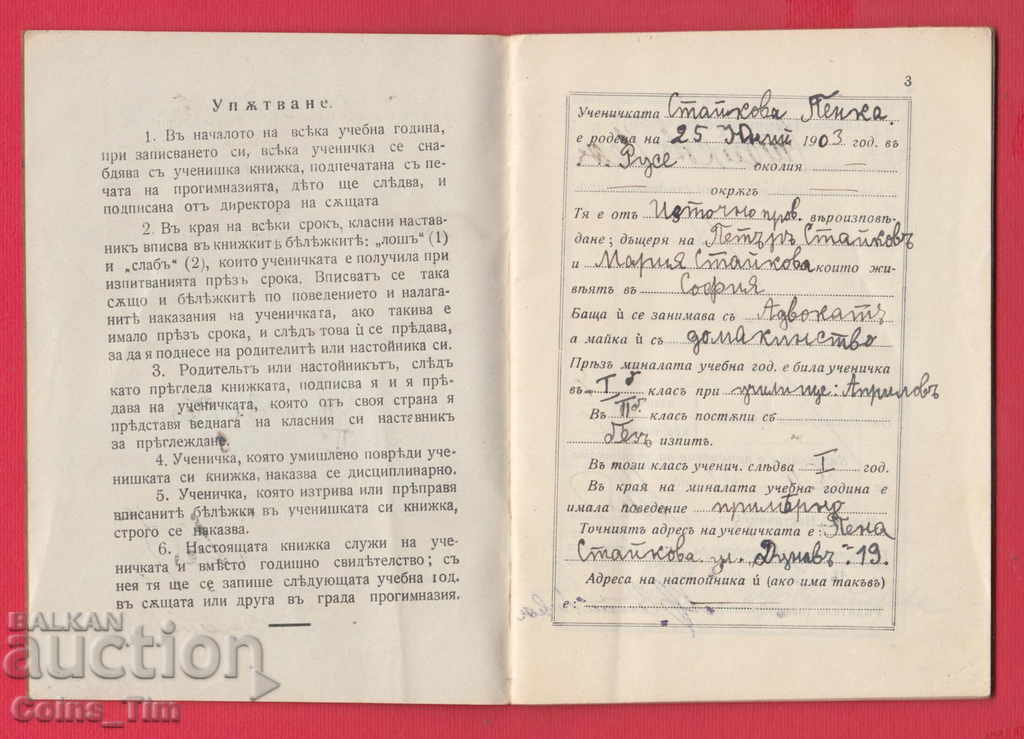 Упѫтване.
1. Въ началото на всѣка учебна година,
при записването си, всѣка ученичка се сна-
бдява съ ученишка книжка, подпечатана съ пе-
чата на прогимназията, дѣто ще слѣдва, и
подписана отъ директора на сѫщата
2. Въ края на всѣки срокъ, класни настав-
никъ вписва въ книжкитѣ бѣлѣжкитѣ: „лошъ“ (1)
и „слабъ“ (2), които ученичката е получила при
изпитванията прѣзъ срока. Вписватъ се така
сѫщо и бѣлѣжкитѣ по поведението и налага-
нитѣ наказания на ученичката, ако такива е
имало прѣзъ срока, и слѣдъ това ѝ се прѣдава,
за да я поднесе на родителитѣ или настойника си.
3. Родительтъ или настойникътъ, слѣдъ
като прѣгледа книжката, подписва я и я прѣ-
дава на ученичката, която отъ своя страна я
прѣдставя веднага на класния си наставникъ
за прѣглеждане.
4. Ученичка, която умишлено поврѣди уче-
нишката си книжка, наказва се дисциплинарно.
5. Ученичка, която изтрива или прѣправя
вписанитѣ бѣлѣжки въ ученишката си книжка,
строго се наказва.
6. Настоящата книжка служи на уче-
ничката и вмѣсто годишно свидѣтелство; съ
нея тя ще се запише слѣдующата учебна год.
въ сѫщата или друга въ града прогимназия.
3
Ученичката Стайкова Пенка.
е родена на 25 Юний 1903 год. въ
Русе околия
окрѫгъ
Тя е отъ Източно прав. вѣроизповѣ-
дане; дъщеря на Петъръ Стайковъ
и Мария Стайкова които жи-
вѣятъ въ София
Баща ѝ се занимава съ Адвокатъ
а майка ѝ съ домакинство
Прѣзъ миналата учебна год. е била ученичка
въ I б класъ при училище: Априловъ
Въ IIб. класъ постѫпи съ
безъ изпитъ.
Въ този класъ ученич. слѣдва I год.
Въ края на миналата учебна година е
имала поведение примѣрно
Точниятъ адресъ на ученичката е: Пена
Стайкова ул. „Дунавъ“ 19.
Адреса на настойника ѝ (ако има такъвъ)
е:
BALKAN
auction
Coins_Tim